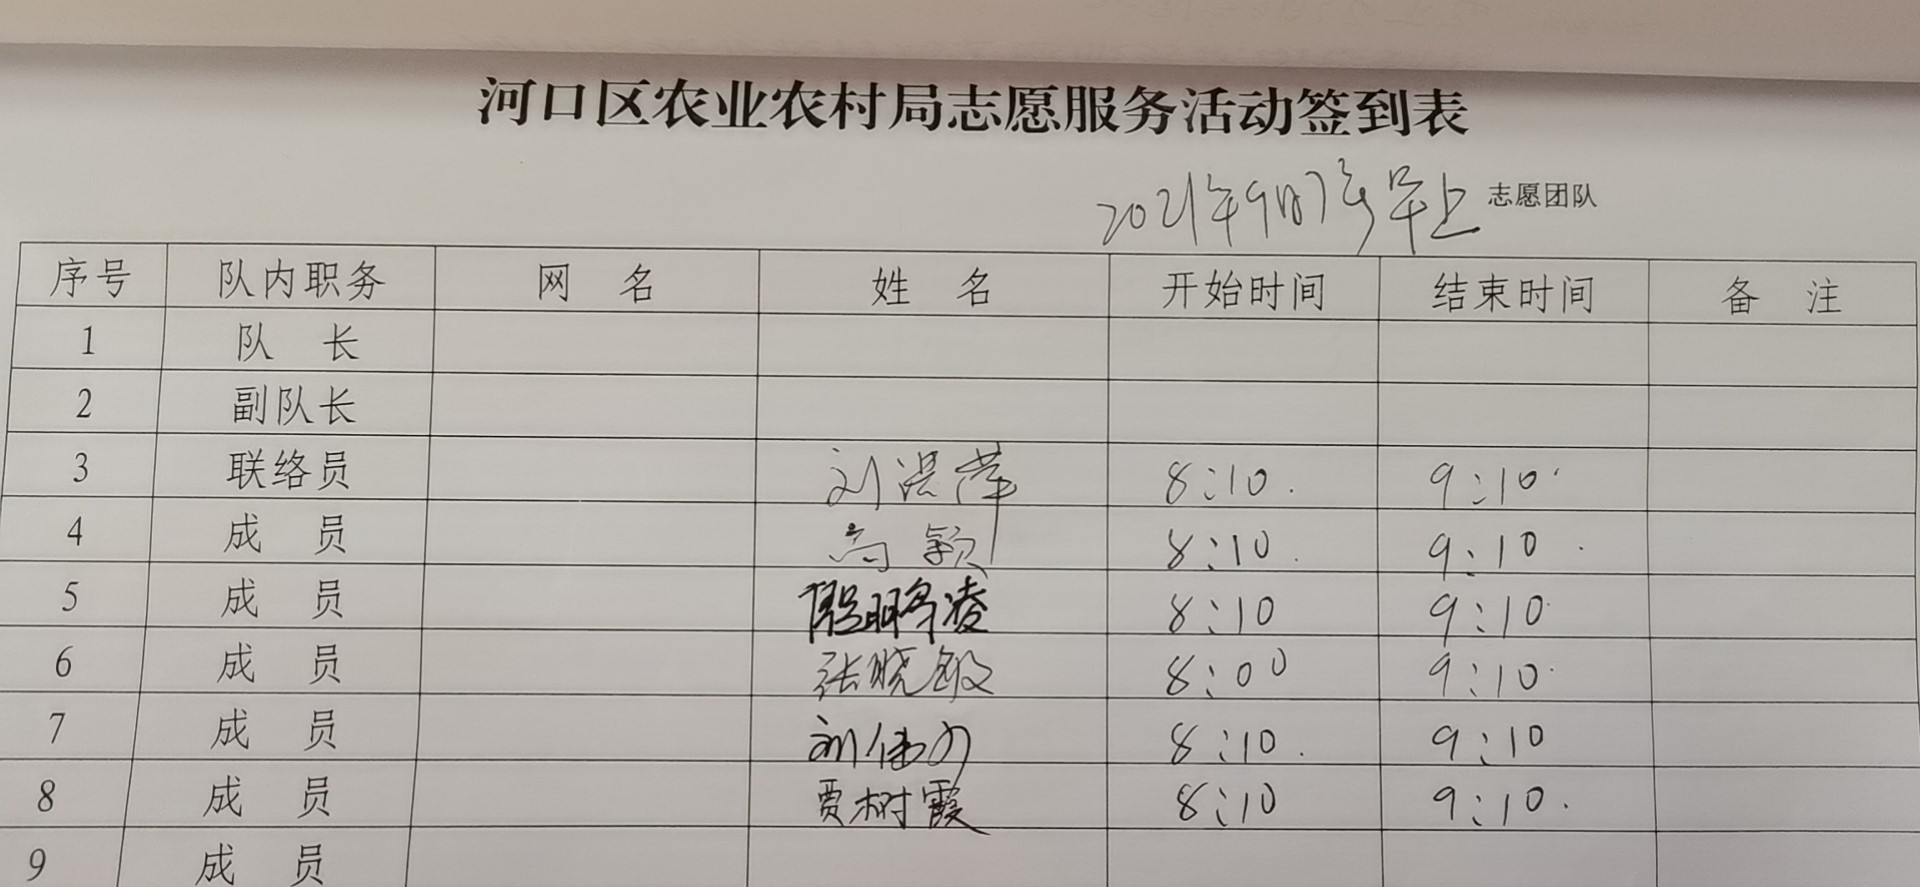 河口区农业农村局志愿服务活动签到表
2021年9月7号早上 志愿团队
序号 队内职务 网 名 姓 名 开始时间 结束时间 备 注
1 队 长
2 副队长
3 联络员 刘洪萍 8:10. 9:10.
4 成 员 尚颖 8:10. 9:10.
5 成 员 凌 8:10 9:10.
6 成 员 张晓敏 8:00 9:10.
7 成 员 刘伟 8:10. 9:10
8 成 员 贾树霞 8:10 9:10.
9 成 员